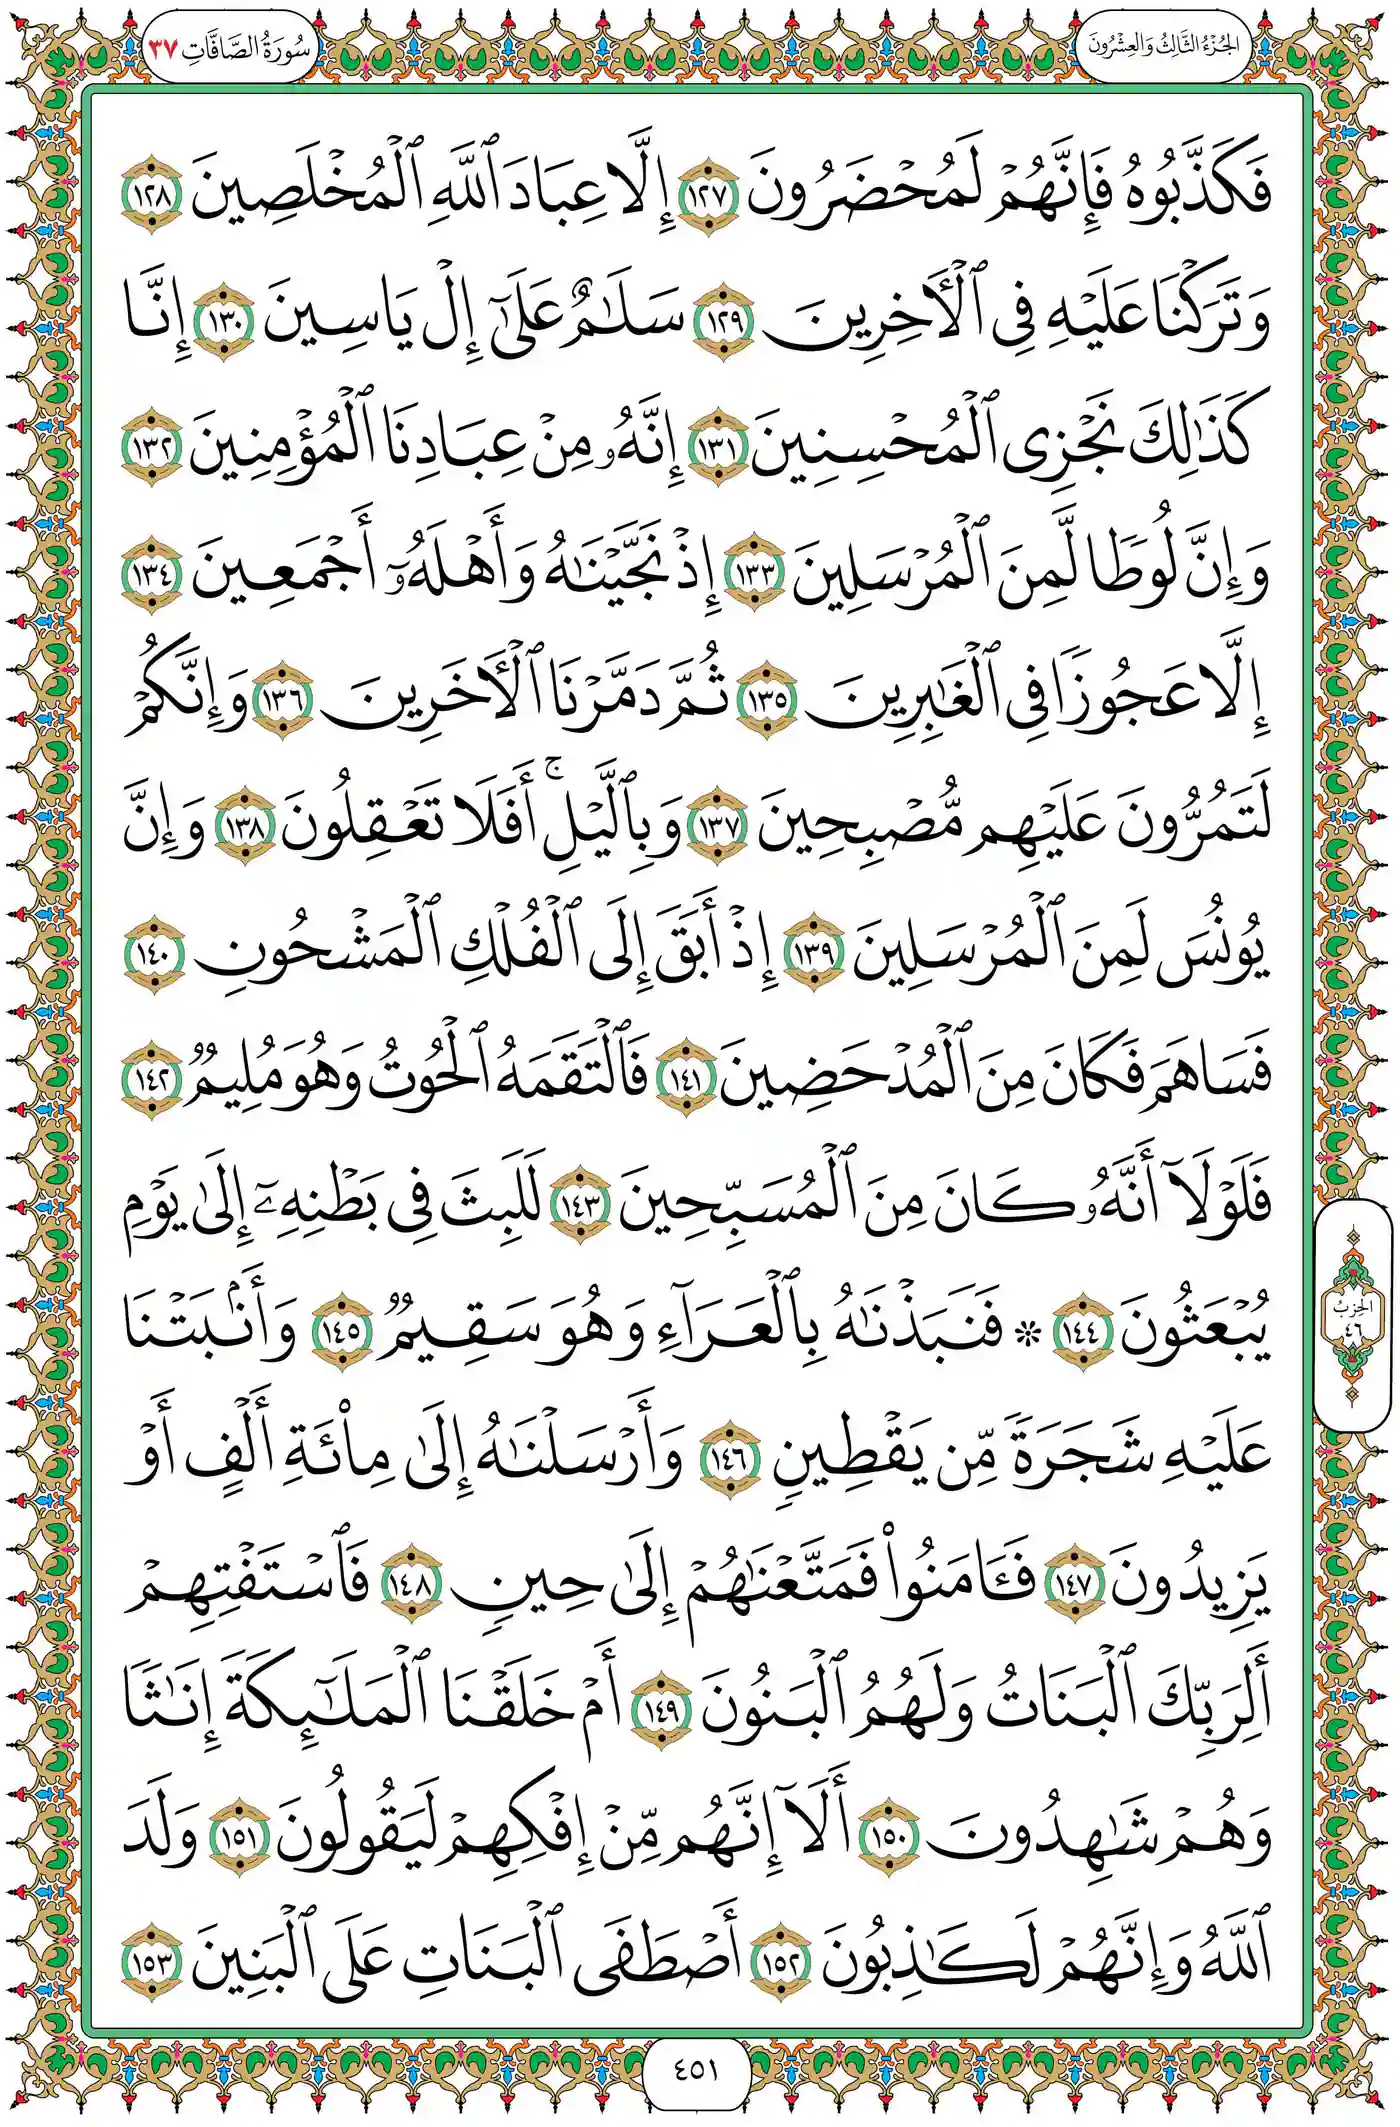 الجُزْءُ الثَّالِثُ وَالعِشْرُونَ
سُورَةُ الصَّافَّاتِ ٣٧
فَكَذَّبُوهُ فَإِنَّهُمْ لَمُحْضَرُونَ ١٢٧ إِلَّا عِبَادَ ٱللَّهِ ٱلْمُخْلَصِينَ ١٢٨
وَتَرَكْنَا عَلَيْهِ فِى ٱلْـَٔاخِرِينَ ١٢٩ سَلَـٰمٌ عَلَىٰٓ إِلْ يَاسِينَ ١٣٠ إِنَّا
كَذَٰلِكَ نَجْزِى ٱلْمُحْسِنِينَ ١٣١ إِنَّهُۥ مِنْ عِبَادِنَا ٱلْمُؤْمِنِينَ ١٣٢
وَإِنَّ لُوطًا لَّمِنَ ٱلْمُرْسَلِينَ ١٣٣ إِذْ نَجَّيْنَـٰهُ وَأَهْلَهُۥٓ أَجْمَعِينَ ١٣٤
إِلَّا عَجُوزًا فِى ٱلْغَـٰبِرِينَ ١٣٥ ثُمَّ دَمَّرْنَا ٱلْـَٔاخَرِينَ ١٣٦ وَإِنَّكُمْ
لَتَمُرُّونَ عَلَيْهِم مُّصْبِحِينَ ١٣٧ وَبِٱلَّيْلِ ۚ أَفَلَا تَعْقِلُونَ ١٣٨ وَإِنَّ
يُونُسَ لَمِنَ ٱلْمُرْسَلِينَ ١٣٩ إِذْ أَبَقَ إِلَى ٱلْفُلْكِ ٱلْمَشْحُونِ ١٤٠
فَسَاهَمَ فَكَانَ مِنَ ٱلْمُدْحَضِينَ ١٤١ فَٱلْتَقَمَهُ ٱلْحُوتُ وَهُوَ مُلِيمٌ ١٤٢
فَلَوْلَآ أَنَّهُۥ كَانَ مِنَ ٱلْمُسَبِّحِينَ ١٤٣ لَلَبِثَ فِى بَطْنِهِۦٓ إِلَىٰ يَوْمِ
يُبْعَثُونَ ١٤٤ ۞ فَنَبَذْنَـٰهُ بِٱلْعَرَآءِ وَهُوَ سَقِيمٌ ١٤٥ وَأَنۢبَتْنَا
عَلَيْهِ شَجَرَةً مِّن يَقْطِينٍ ١٤٦ وَأَرْسَلْنَـٰهُ إِلَىٰ مِا۟ئَةِ أَلْفٍ أَوْ
يَزِيدُونَ ١٤٧ فَـَٔامَنُوا۟ فَمَتَّعْنَـٰهُمْ إِلَىٰ حِينٍ ١٤٨ فَٱسْتَفْتِهِمْ
أَلِرَبِّكَ ٱلْبَنَاتُ وَلَهُمُ ٱلْبَنُونَ ١٤٩ أَمْ خَلَقْنَا ٱلْمَلَـٰٓئِكَةَ إِنَـٰثًا
وَهُمْ شَـٰهِدُونَ ١٥٠ أَلَآ إِنَّهُم مِّنْ إِفْكِهِمْ لَيَقُولُونَ ١٥١ وَلَدَ
ٱللَّهُ وَإِنَّهُمْ لَكَـٰذِبُونَ ١٥٢ أَصْطَفَى ٱلْبَنَاتِ عَلَى ٱلْبَنِينَ ١٥٣
الحِزْبُ
٤٦
٤٥١